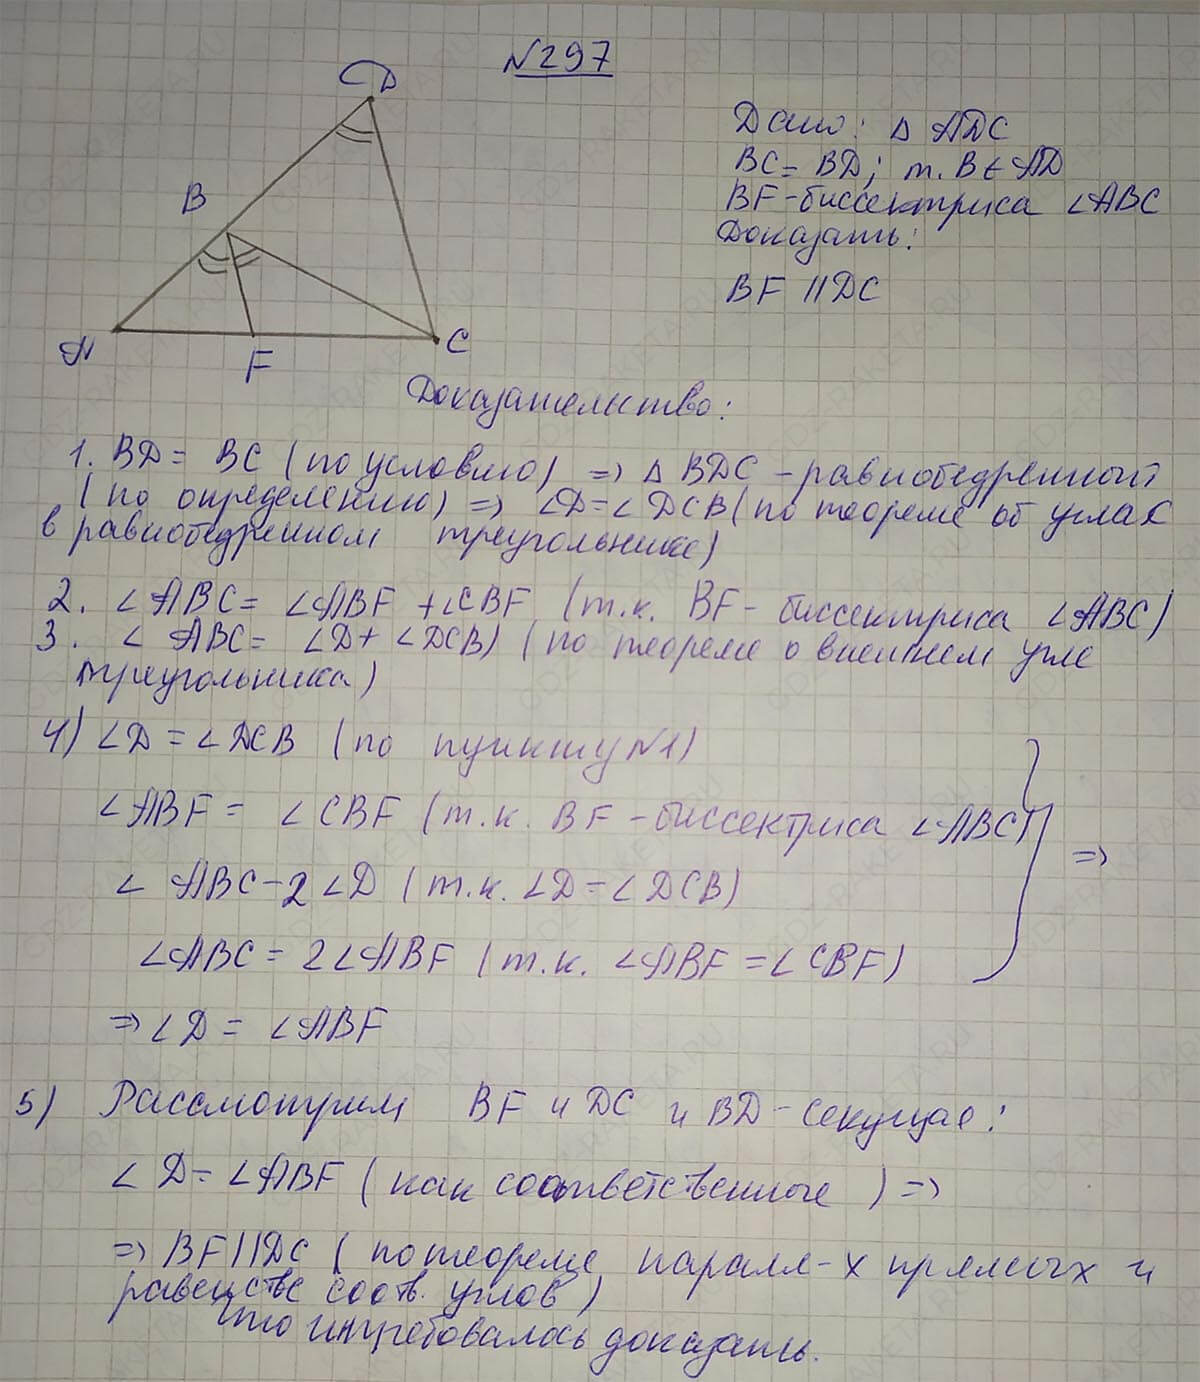 №297
D
B
A
F
C
Дано: △ ADC
BC = BD; т. B ∈ AD
BF - биссектриса ∠ABC
Доказать:
BF || DC
Доказательство:
1. BD = BC (по условию) => △ BDC - равнобедренный
(по определению) => ∠D = ∠DCB (по теореме об углах
в равнобедренном треугольнике)
2. ∠ABC = ∠ABF + ∠CBF (т.к. BF - биссектриса ∠ABC)
3. ∠ABC = ∠D + ∠DCB) (по теореме о внешнем угле
треугольника)
4) ∠D = ∠DCB (по пункту №1)
∠ABF = ∠CBF (т.к. BF - биссектриса ∠ABC)
=>
∠ABC - 2∠D (т.к. ∠D = ∠DCB)
∠ABC = 2∠ABF (т.к. ∠ABF = ∠CBF)
=> ∠D = ∠ABF
5) Рассмотрим BF и DC и BD - секущая:
∠D = ∠ABF (как соответственные) =>
=> BF || DC (по теореме паралл-х прямых и
равенстве соотв. углов)
Что и требовалось доказать.